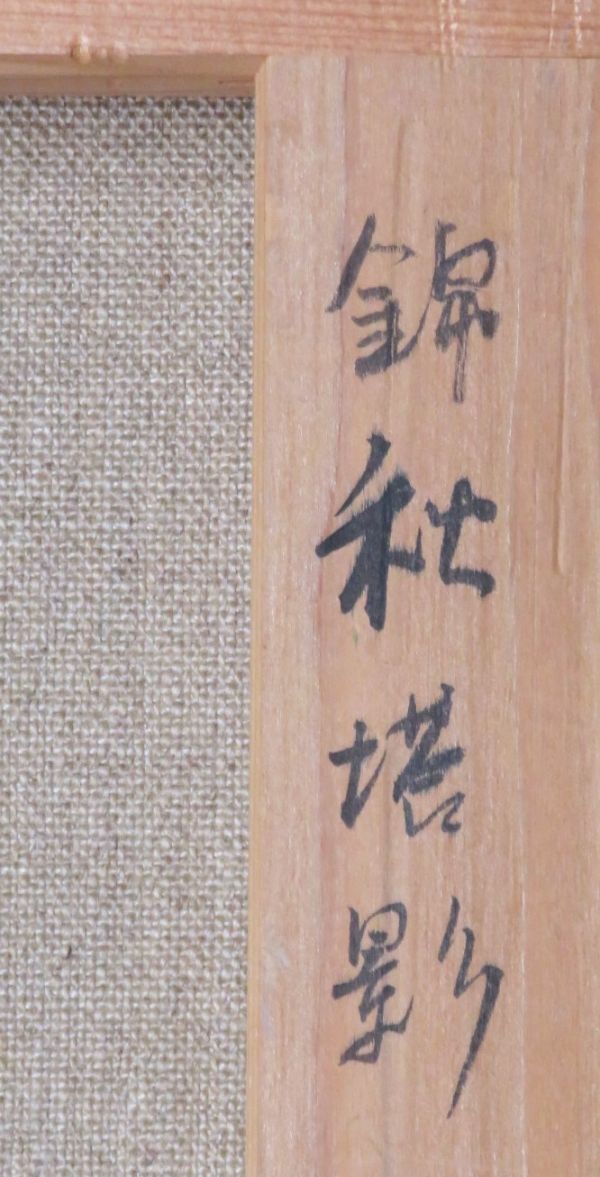 錦秋塔影